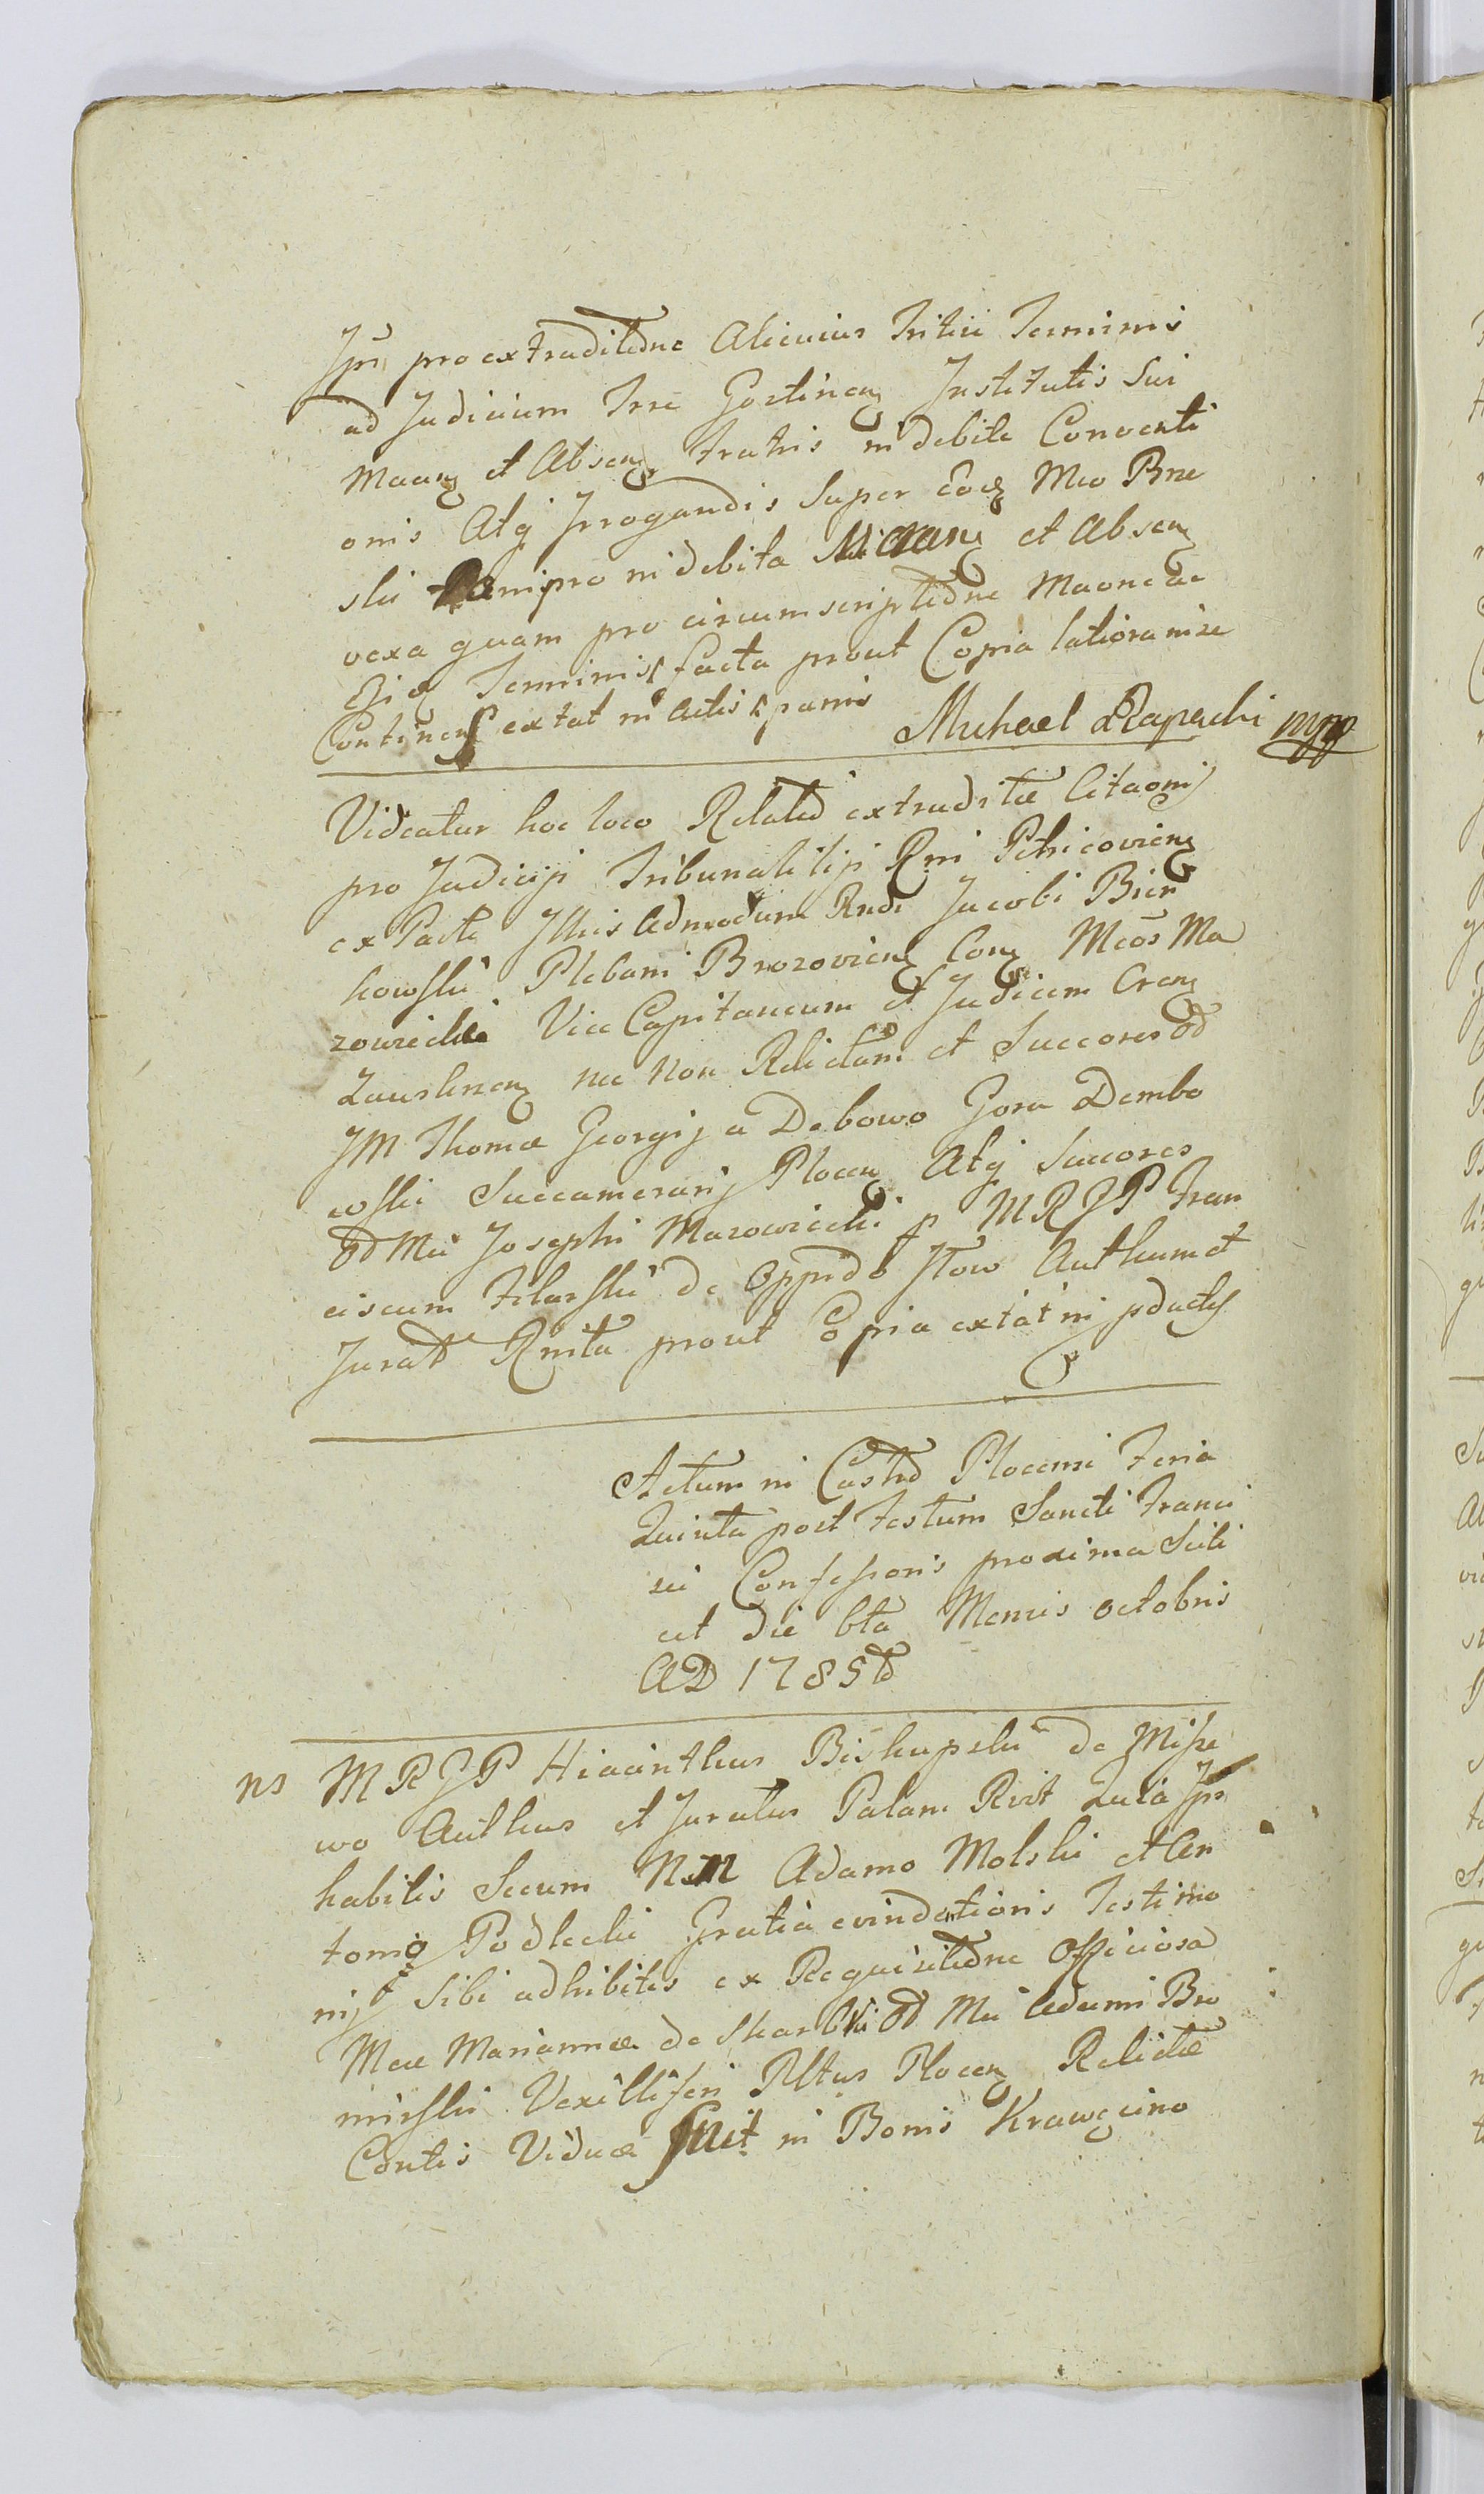 Jpi pro extraditõne Alicuius Tritici Terminis
ad Judicium Trre Gostinen Institutis Sui
Maan et Absen fratris indebite Conventi
onis Atq Irrogandis Super Eode Mco Brze
ski tam pro indebita Maan et Absen
vexa quam pro circumscriptõne Maone ac
Ejq Terminis facta prout Copia latiora in se
Continens extat in Actis spanis
Michael Rzapecki mpp
Videatur hoc loco Relatõ extraditæ Citaonis
pro Judicijs Tribunalitijs Rni Petricovien
ex Parte Jllris Admodum Rndi Jacobi Bier
kowski Plebani Brozovien Con Mcos Ma
zowiecki Vice Capitaneum et Judicem Cren
Zauskrnen nec non Relictam et Succores õd
JM Thomæ Georgij a Debowo Gora Dembo
wski Succamerarij Plocen Atq Succores
õd Mci Josephi Mazowiecki p MRGP Fran
ciscum Filarski de Oppido Jłow Authum et
Jurat Rnita prout Copia extat in pductis
Actum in Castrõ Plocensi Feria
Quinta post Festum Sancti Franci
sci Confessoris proxima Scili
cet die 6ta Mensis Octobris
AD 1785tõ
ns MRGP Hiacinthus Biskupski de Misze
wo Authus et Juratus Palam Rcvit Quia Jps
habitis Secum NN Adamo Molski et An
tonio Podlecki Gratia evindentioris Testimo
nij Sibi adhibitis ex Requisitõne Officiosa
Mcæ Mariannæ de Skarbki õd Mci Adami Bro
mirski Vexilliferi Pltus Plocen Relictæ
Contis Viduæ fuit in Bonis Krawęcino